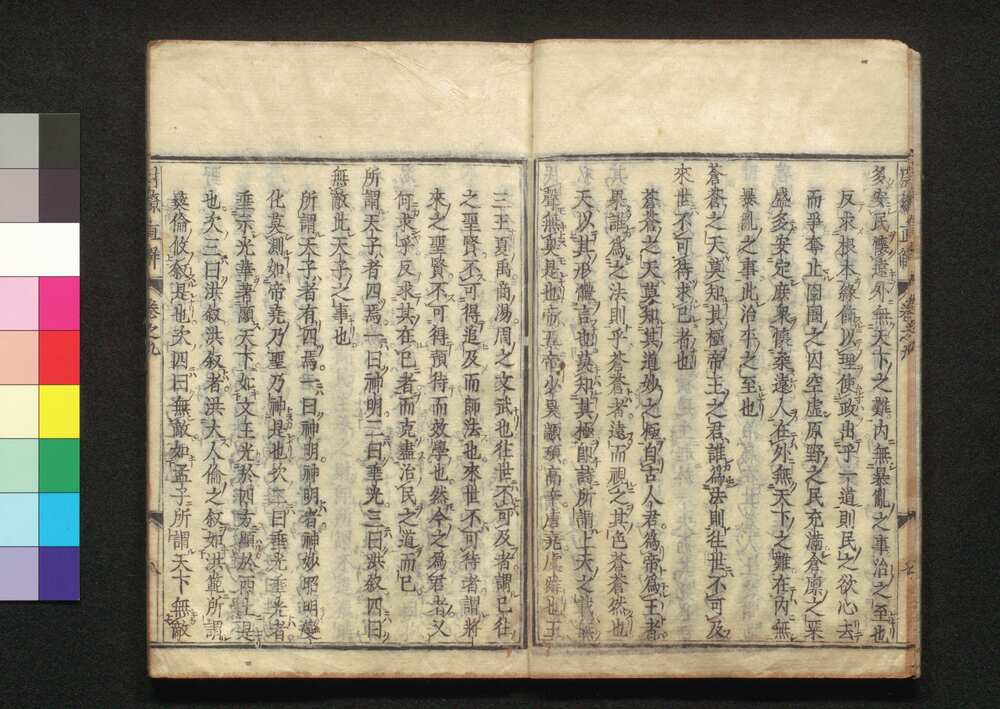 多安民懷遠外無天下之難內無暴亂之事治之至也
反求根本緣倫以理使政出乎一道則民之欲心去
而爭奪止囹圄之囚空虛原野之民充滿倉廩之粟
盛多安定庶衆懷柔遠人在外無天下之難在內無
暴亂之事此治平之至也
蒼蒼之天莫知其極帝王之君誰爲法則往世不可及
來世不可待求己者也
蒼蒼之天莫知其道妙之極自古人君爲帝爲王者
果誰爲之法則乎蒼蒼者遠而視之其色蒼蒼然也
天以其形體言也莫知其極卽詩所謂上天之載無
聲無臭是也帝五帝少昊顓頊高辛唐堯虞舜也王
三王夏禹商湯周之文武也往世不可及者謂已往
之聖賢不可得追及而師法也來世不可待者謂將
來之聖賢不可得預待而效學也然今之爲君者又
何求乎反求其在己者而克盡治民之道而已
所謂天子者四焉一曰神明二曰垂光三曰洪敘四曰
無敵此天子之事也
所謂天子者有四焉一曰神明神明者神妙昭明變
化莫測如帝堯乃聖乃神是也次二曰垂光垂光者
垂示光華著顯天下如文王光於四方顯於西土是
也次三曰洪敘洪敘者洪大人倫之敘如洪範所謂
彝倫攸敘是也次四曰無敵如孟子所謂天下無敵
直解 卷之九